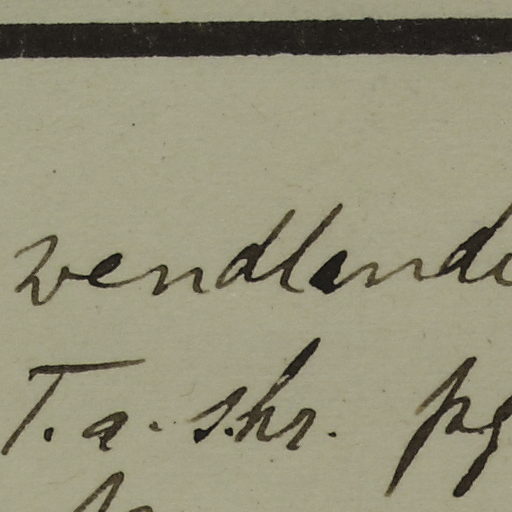 wendlandi
T. a. s.hr. pg